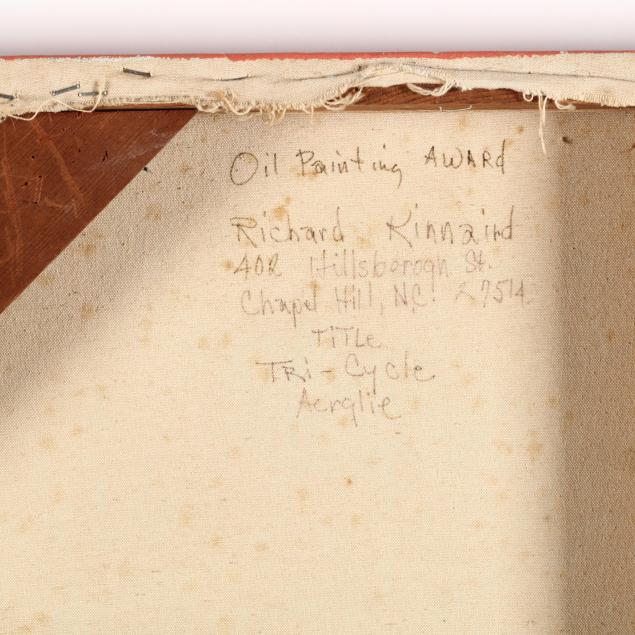 Oil Painting AWARd
Richard Kinnaird
402 Hillsborogh St.
Chapel Hill, N.C. 27514
TiTLe
TRi-Cycle
Acrylic